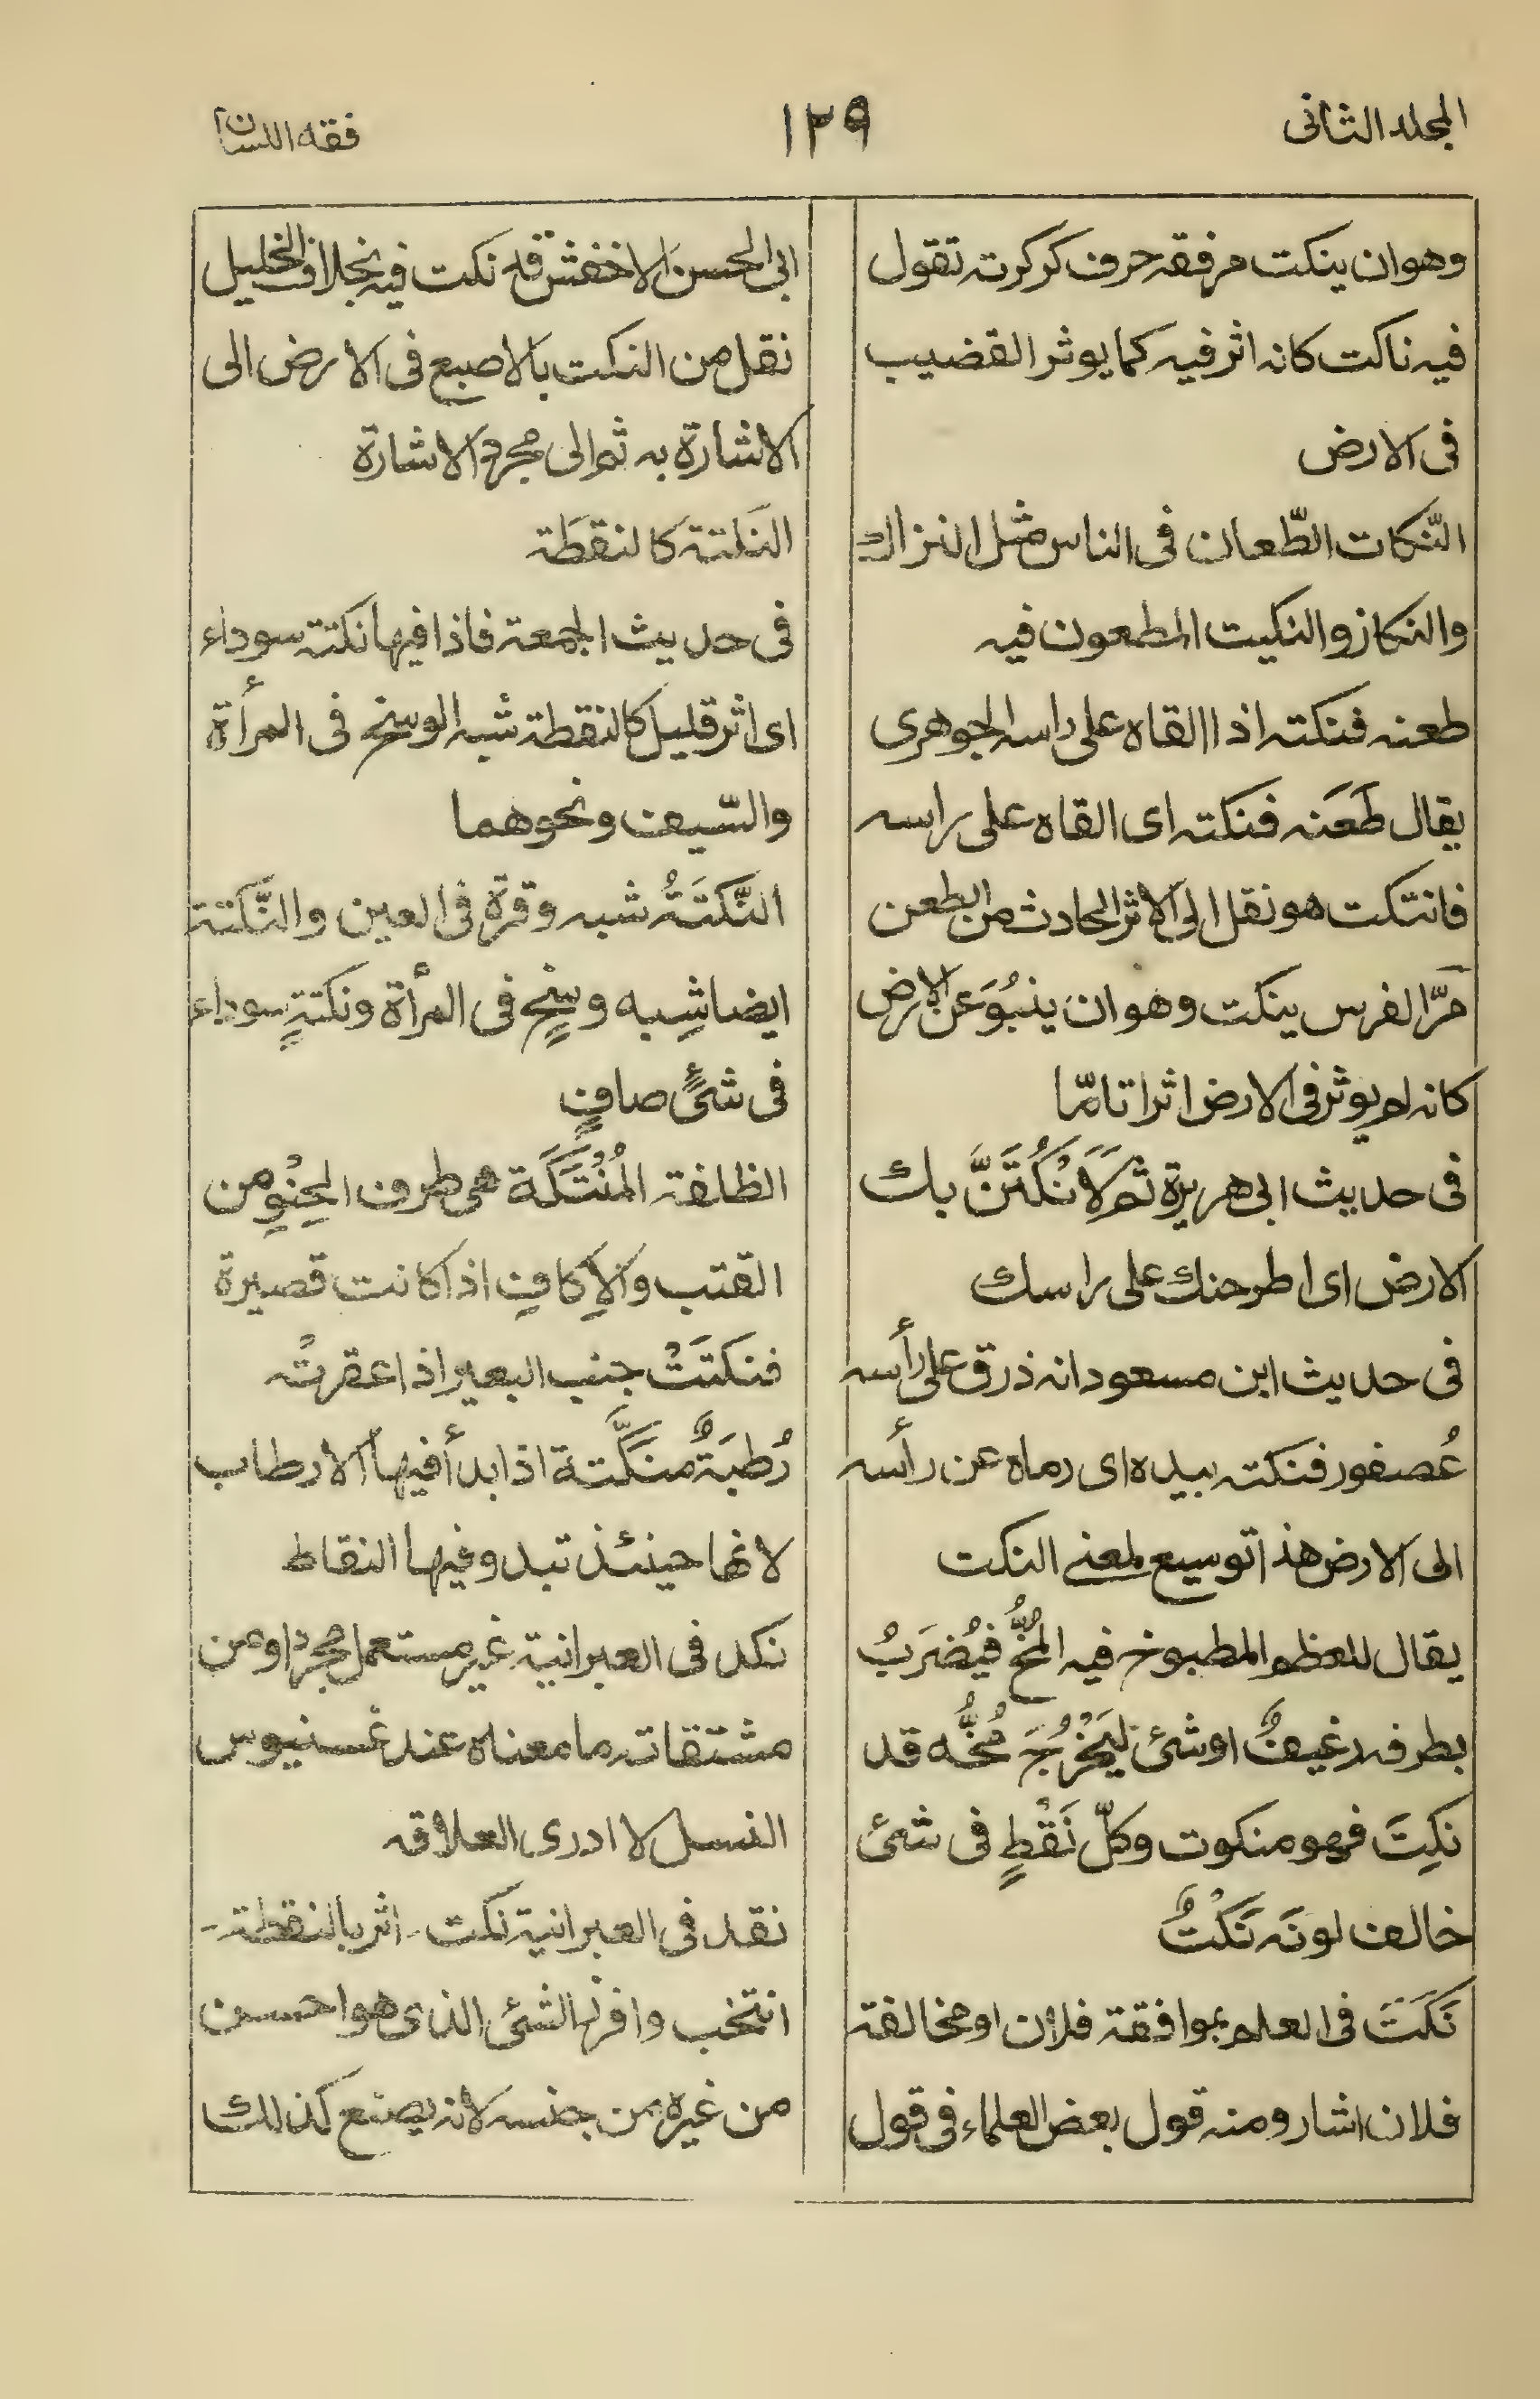 المجلد الثانی
١٢٩
فقه اللسان
وهوان ینکت مرفقه حرف کرکرته تقول
فیه ناکت کانه اثر فیه کما یوثر القضیب
فی الارض
النّکات الطّعان فی الناس مثل النزاك
والنکاز والنکیت المطعون فیه
طعنه فنکته اذا القاه علی راسه الجوهری
یقال طَعَنه فنکته ای القاه علی راسه
فانتکت هو نقل الی الاثر الحادث من الطعن
مَرّ الفرس ینکت وهوان ینبُوَ عن الارض
کانه لم یوثر فی الارض اثرا تامّا
فی حدیث ابی هریرة ثم لَاَنْکُتَنَّ بك
الارض ای اطرحنك علی راسك
فی حدیث ابن مسعود انه ذرق علی رأسه
عُصفور فنکته بیده ای رماه عن رأسه
الی الارض هذا توسیع لمعنے النکت
یقال للعظم المطبوخ فیه المُخُّ فیُضرَبُ
بطرفه رغیفٌ اوشیٔ لیَخْرُجَ مُخُّه قد
نُکِتَ فهو منکوت وکلّ نَقْطٍ فی شیٔ
خالف لونَه نَکْتٌ
نَکَتَ فی العلم بموافقة فلان او مخالفة
فلان اشار ومنه قول بعض العلماء فی قول
ابی الحسن الاخفش قد نکت فیه بخلاف الخلیل
نقل من النکت بالاصبع فی الارض الی
الاشارة به ثم الی مجرد الاشارة
النَکتة کالنقطَة
فی حدیث الجمعة فاذا فیها نکتة سوداء
ای اثر قلیل کالنقطة شبه الوسخ فی المرأة
والسّیف ونحوهما
النَّکتَةُ شبه وقرة فی العین والنَّکتة
ایضا شِبه وسخٍ فی المرأة ونکتةٍ سوداء
فی شیٍٔ صافٍ
الظلفة المُنْتَکَّة هی طرف الحِنْوِ من
القتب والاِکافِ اذا کانت قصیرة
فنکتَتْ جنب البعیر اذا عقرتْه
رُطبَةٌ منَکَّتة اذا بدأ فیها الارطاب
لانها حینئذ تبدو فیها النقاط
نکد فی العبرانیة غیر مستعمل مجردا ومن
مشتقاته ما معناه عند غسنیوس
النسل لا ادری العلاقه
نقد فی العبرانیة نکت - اثر بالنقطة -
انتخب وافرز الشیٔ الذی هو احسن
من غیره من جنسه لانه یصنع کذلك